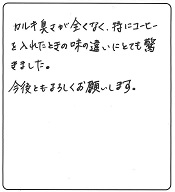 カルキ臭さが全くなく、特にコーヒー
を入れたときの味の違いにとても驚
きました。
今後ともよろしくお願いします。